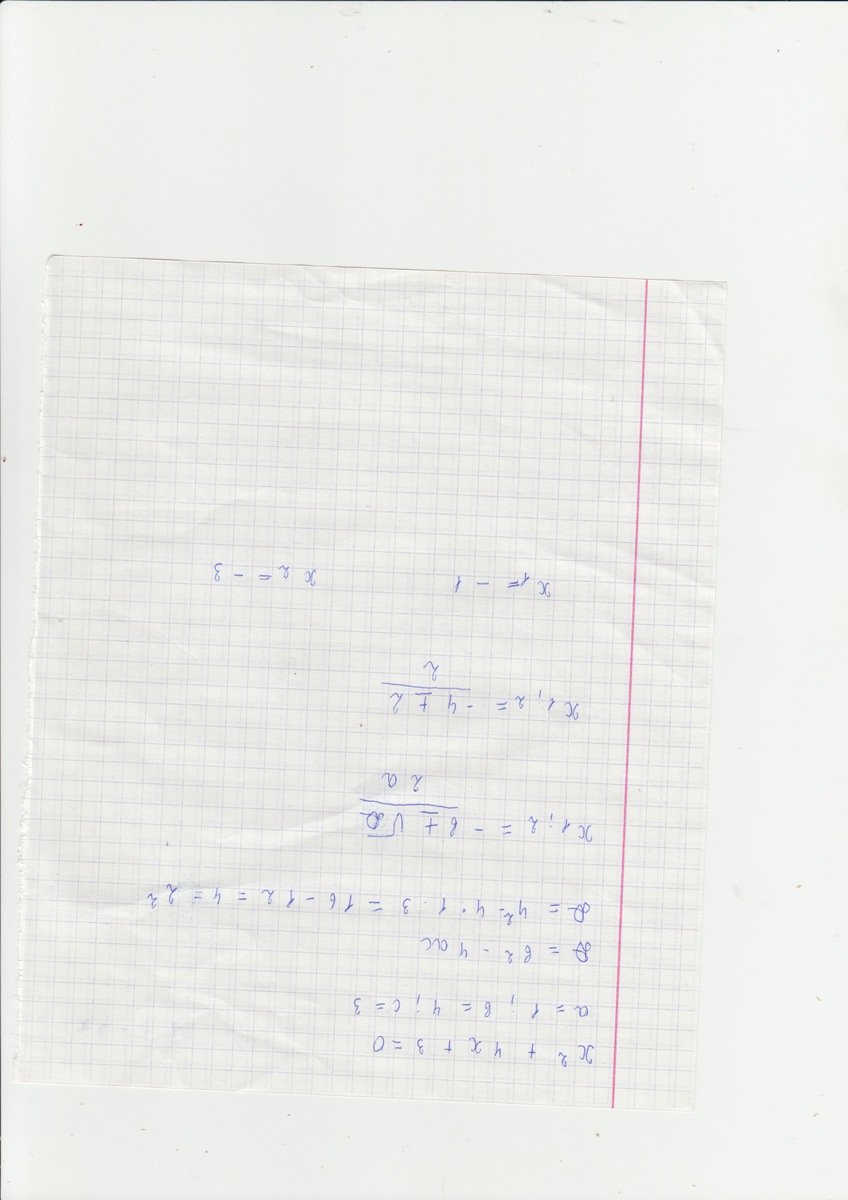 x² + 4x + 3 = 0
a = 1; b = 4; c = 3
D = b² - 4ac
D = 4² - 4 · 1 · 3 = 16 - 12 = 4 = 2²
x1;2 = -b ± √D / 2a
x1,2 = -4 ± 2 / 2
x1 = -1 x2 = -3